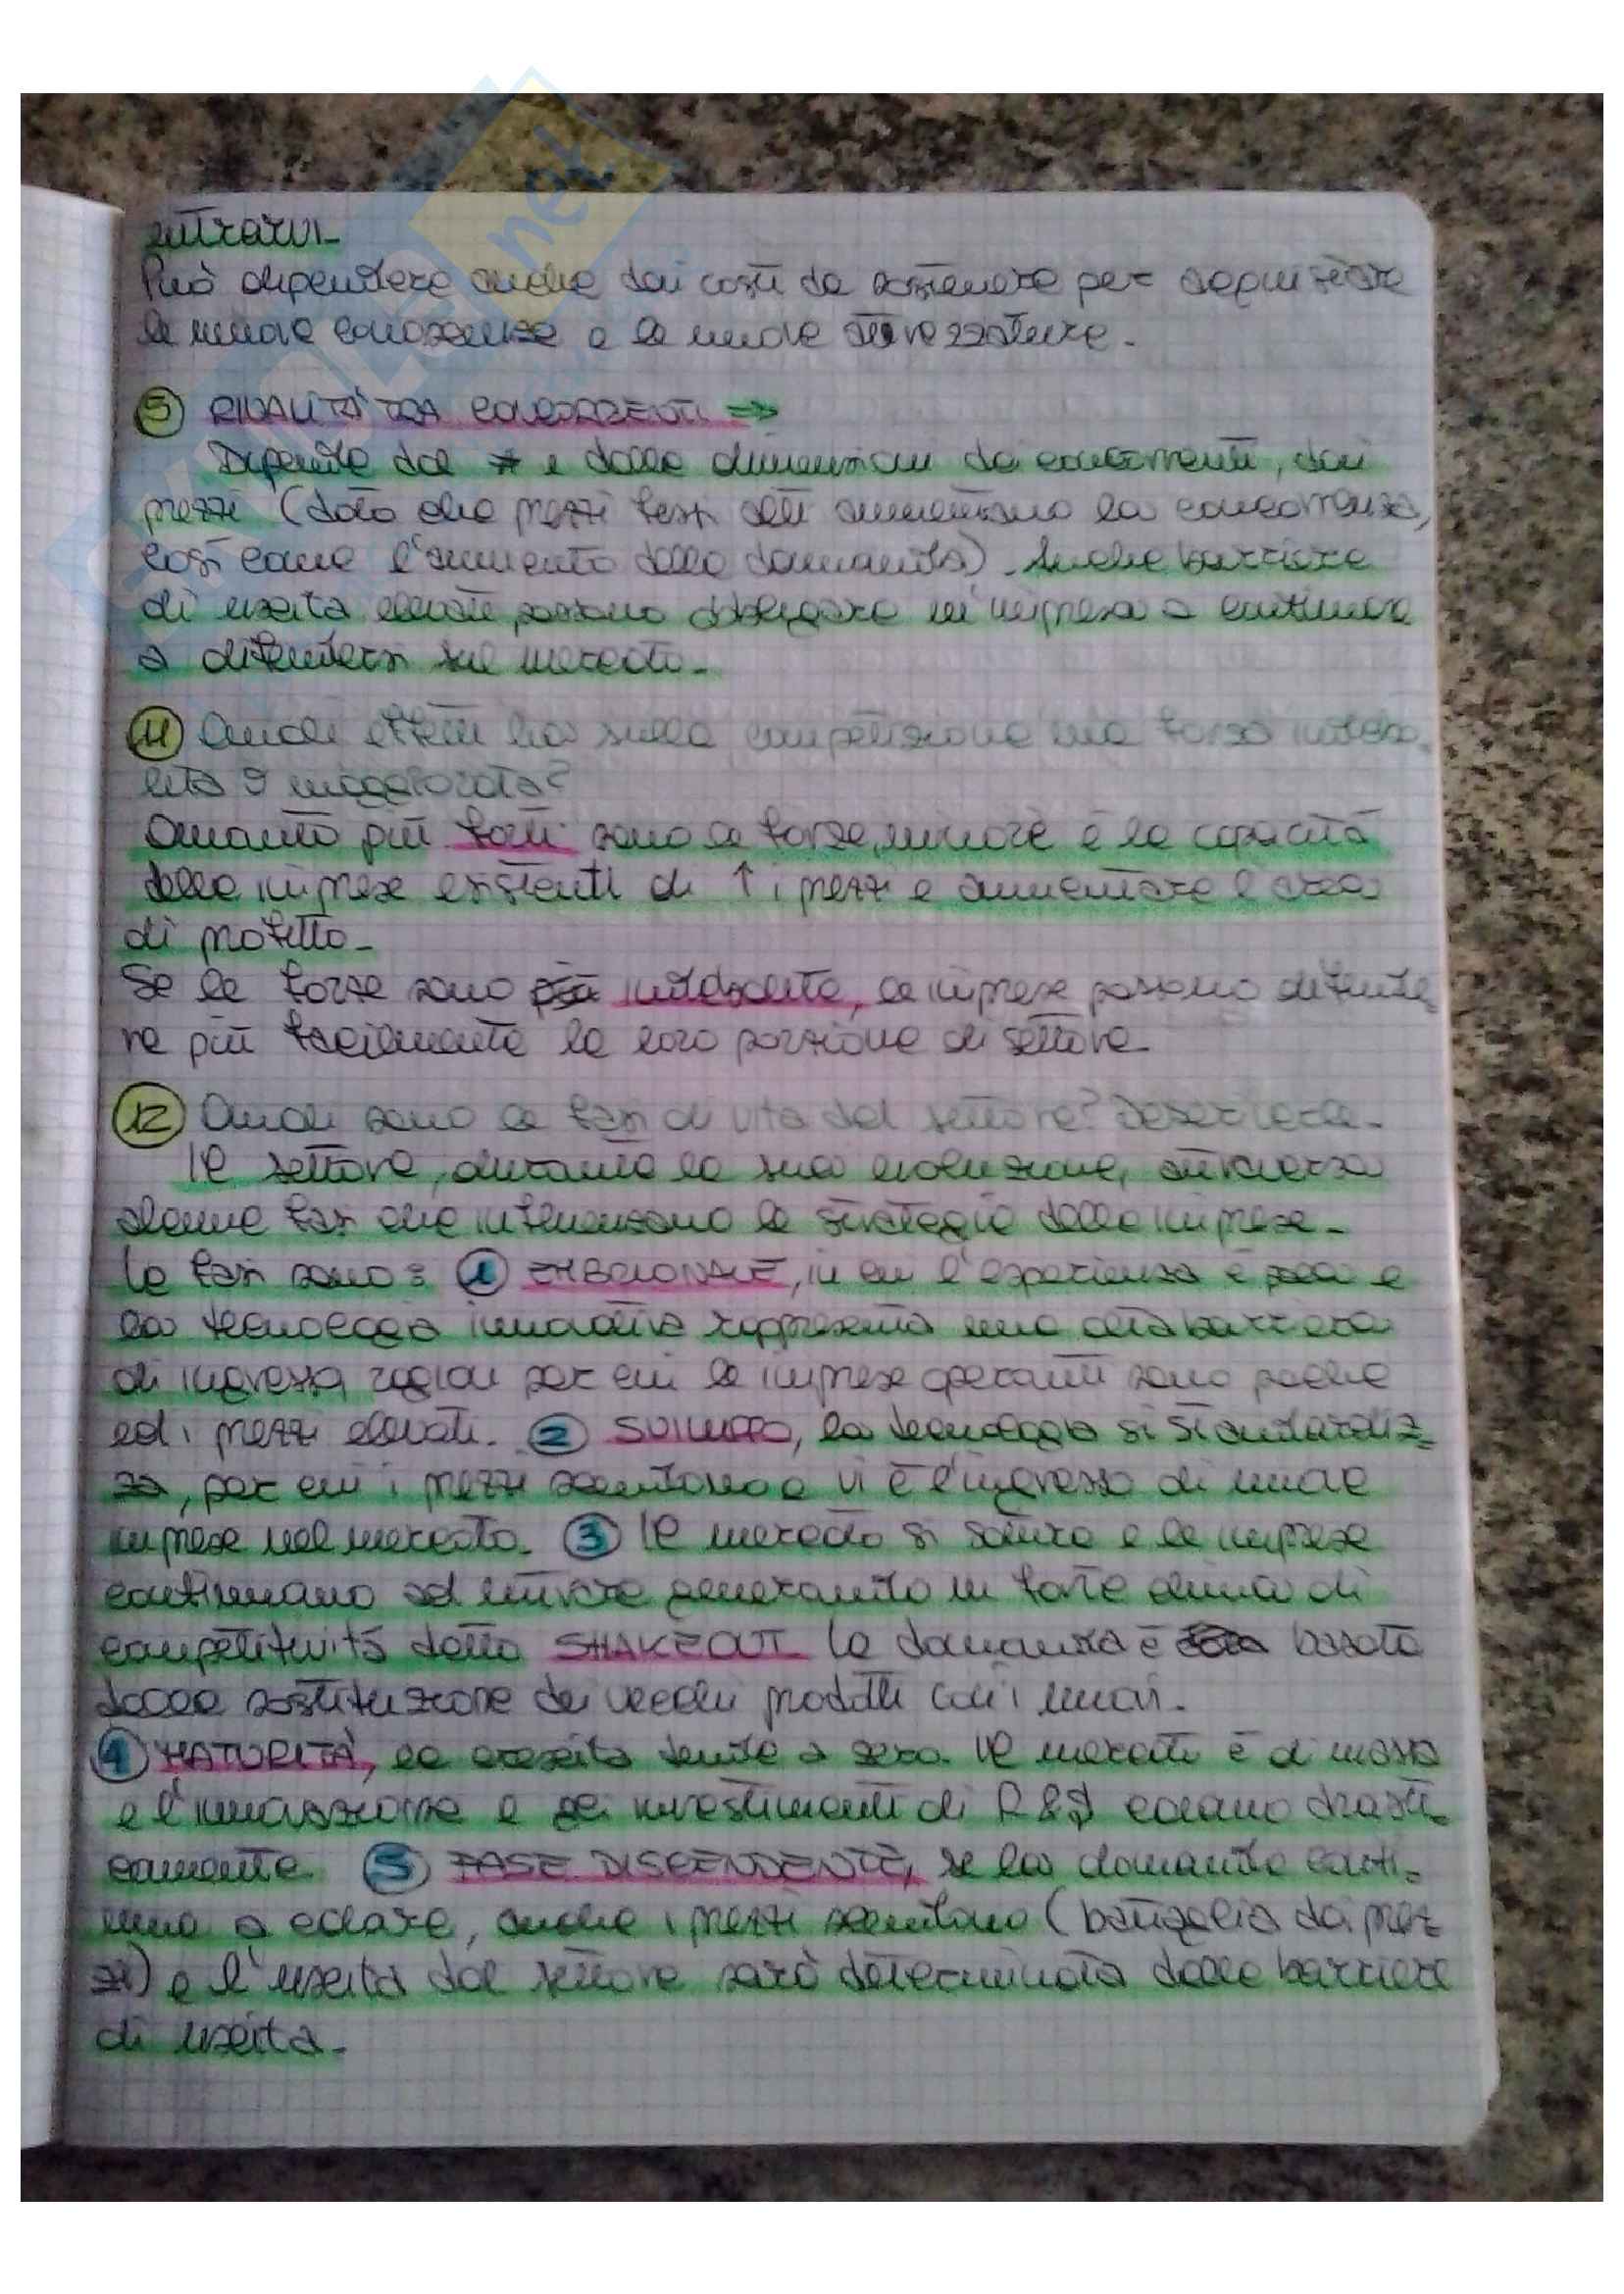 entrarvi.
Può dipendere anche dai costi da sostenere per acquisire
le nuove conoscenze e le nuove attrezzature.
5 RIVALITÀ TRA CONCORRENTI ⇒
Dipende dal # e dalle dimensioni dei concorrenti, dai
prezzi (dato che prezzi fissi alti aumentano la concorrenza,
così come l'aumento della domanda). Anche barriere
di uscita elevate possono obbligare un'impresa a continuare
a difendersi sul mercato.
11 Quali effetti ha sulla competizione una forza indebo-
lita o maggiorata?
Quanto più forti sono le forze, minore è la capacità
delle imprese esistenti di ↑ i prezzi e aumentare l'area
di profitto.
Se le forze sono più indebolite, le imprese possono difende-
re più facilmente la loro porzione di settore.
12 Quali sono le fasi di vita del settore? Descrivere.
Il settore, durante la sua evoluzione, attraversa
alcune fasi che influenzano le strategie delle imprese.
Le fasi sono: 1 EMBRIONALE, in cui l'esperienza è poca e
la tecnologia innovativa rappresenta una alta barriera
di ingresso, ragion per cui le imprese operanti sono poche
ed i prezzi elevati. 2 SVILUPPO, la tecnologia si standardiz-
za, per cui i prezzi scendono e vi è l'ingresso di nuove
imprese nel mercato. 3 Il mercato si satura e le imprese
continuano ad entrare generando un forte clima di
competitività detto SHAKEOUT. La domanda è basata
sulla sostituzione dei vecchi prodotti con i nuovi.
4 MATURITÀ, la crescita tende a zero. Il mercato è di massa
e l'innovazione e gli investimenti di R&S calano drasti-
camente. 5 FASE DISCENDENTE, se la domanda conti-
nua a calare, anche i prezzi scendono (battaglia dei prez-
zi) e l'uscita dal settore sarà determinata dalle barriere
di uscita.